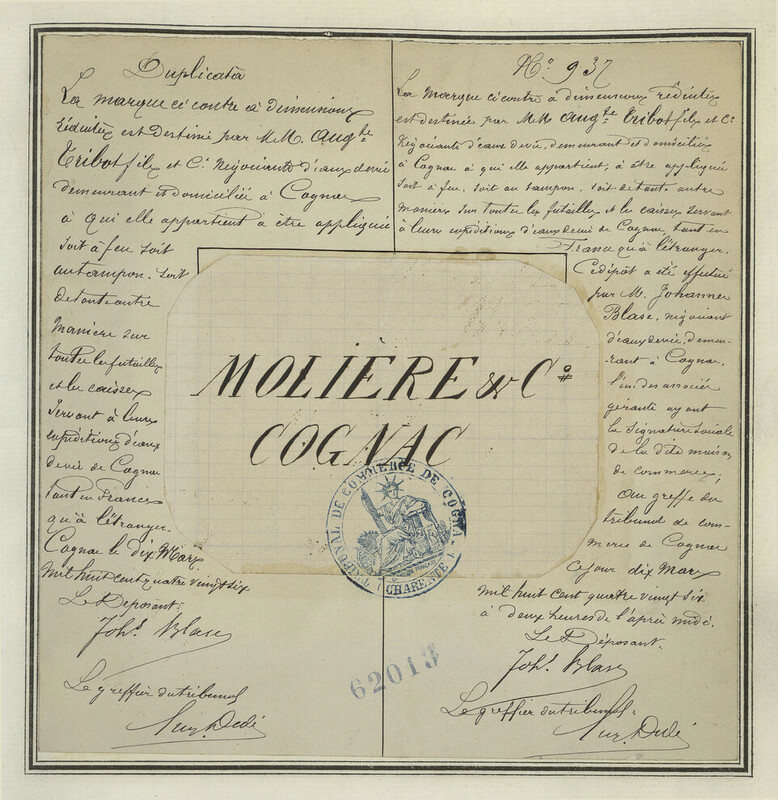 Duplicata
La marque ci contre à dimensions
réduites est destinée par MM. Augte
Tribot fils et Cie Négociants d'eaux de vie
demeurant et domiciliés à Cognac
à qui elle appartient à être appliquée
soit à feu soit
au tampon. soit
de toute autre
manière sur
toutes les futailles
et les caisses
servant à leurs
expéditions d'eaux
de vie de Cognac
tant en France
qu'à l'étranger.
Cognac le dix Mars
mil huit cent quatre vingt six
Le Déposant:
Johs Blase
Le greffier du tribunal
No 937
La marque ci contre à dimensions réduites
est destinée par MM Augte Tribot fils et Cie
Négociants d'eaux de vie, demeurant et domiciliés
à Cognac à qui elle appartient, à être appliquée
soit à feu, soit au tampon. soit de toute autre
manière sur toutes les futailles et les caisses servant
à leurs expéditions d'eaux de vie de Cognac, tant en
France qu'à l'étranger.
Ce dépôt a été effectué
par M. Johannes
Blase, négociant
d'eaux de vie, demeu-
rant à Cognac,
l'un des associés
gérants ayant
la signature sociale
de la dite maison
de commerce;
au greffe du
tribunal de com-
merce de Cognac
ce jour dix Mars
mil huit cent quatre vingt six
à deux heures de l'après midi.
Le Déposant.
Johs Blase
Le greffier du tribunal
MOLIÈRE & Co
COGNAC
TRIBUNAL DE COMMERCE DE COGNAC
CHARENTE
62013